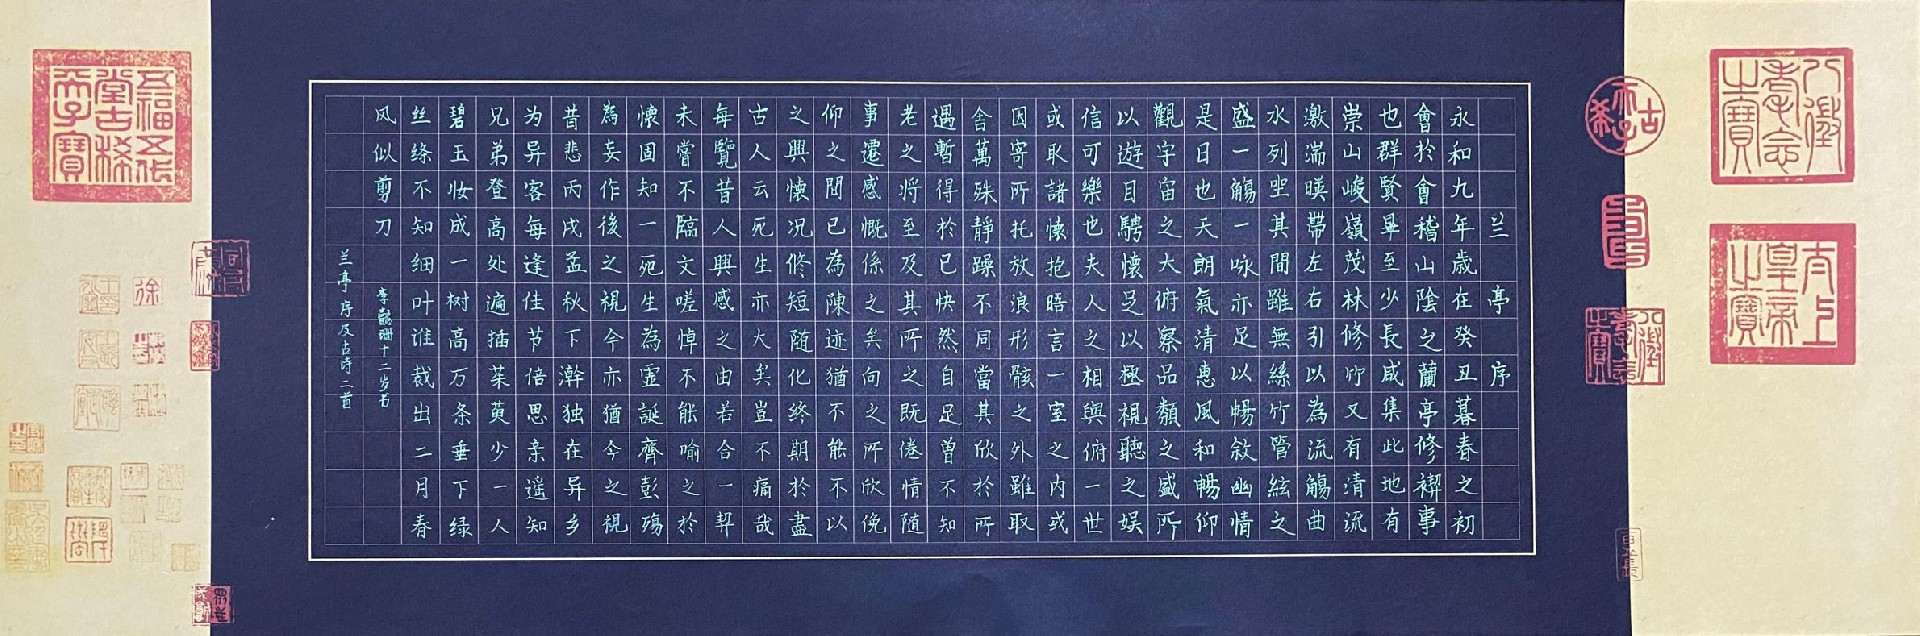 八徵耄念之寶
太上皇帝之寶
古希天子
八徵耄念之寶
兰亭序
永和九年歲在癸丑暮春之初
會於會稽山陰之蘭亭修禊事
也群賢畢至少長咸集此地有
崇山峻嶺茂林修竹又有清流
激湍暎帶左右引以為流觴曲
水列坐其間雖無絲竹管絃之
盛一觴一咏亦足以暢敘幽情
是日也天朗氣清惠風和暢仰
觀宇宙之大俯察品類之盛所
以遊目騁懷足以極視聽之娱
信可樂也夫人之相與俯一世
或取諸懷抱晤言一室之内或
因寄所托放浪形骸之外雖取
舍萬殊靜躁不同當其欣於所
遇暫得於己快然自足曾不知
老之將至及其所之既倦情随
事遷感慨係之矣向之所欣俛
仰之間已為陳迹猶不能不以
之興懷况修短随化終期於盡
古人云死生亦大矣豈不痛哉
每覽昔人興感之由若合一契
未嘗不臨文嗟悼不能喻之於
懷固知一死生為虛誕齊彭殤
為妄作後之視今亦猶今之視
昔悲丙戌孟秋下澣独在异乡
为异客每逢佳节倍思亲遥知
兄弟登高处遍插茱萸少一人
碧玉妆成一树高万条垂下绿
丝绦不知细叶谁裁出二月春
风似剪刀
李懿珊十二岁书
兰亭序及古诗二首
五福五代堂古稀天子寶